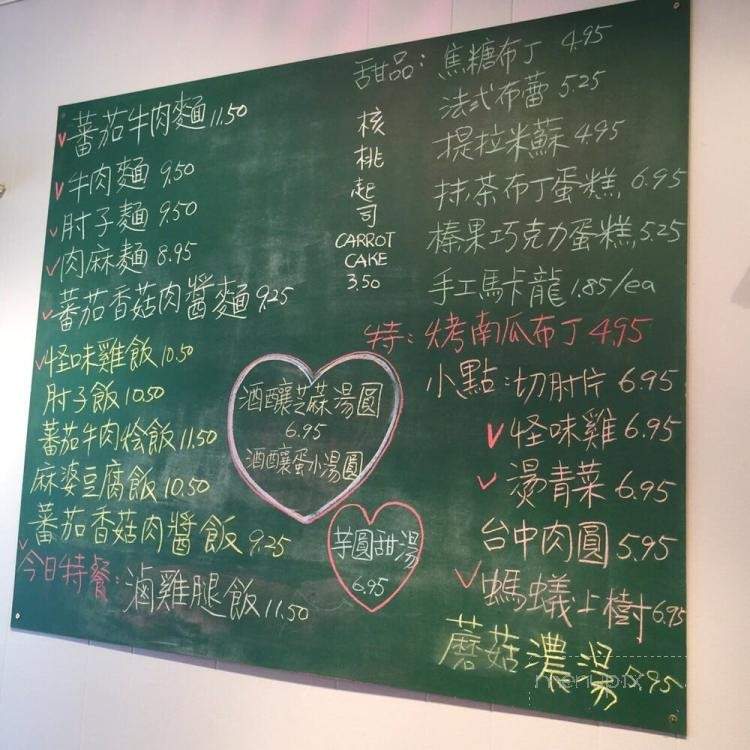 蕃茄牛肉麵 11.50
牛肉麵 9.50
肘子麵 9.50
肉麻麵 8.95
蕃茄香菇肉醬麵 9.25
怪味雞飯 10.50
肘子飯 10.50
蕃茄牛肉烩飯 11.50
麻婆豆腐飯 10.50
蕃茄香菇肉醬飯 9.25
今日特餐：滷雞腿飯 11.50
核
桃
起
司
CARROT
CAKE
3.50
酒釀芝蔴湯圓
6.95
酒釀蛋小湯圓
芋圓甜湯
6.95
甜品：焦糖布丁 4.95
法式布蕾 5.25
提拉米蘇 4.95
抹茶布丁蛋糕 6.95
榛果巧克力蛋糕 5.25
手工馬卡龍 1.85/ea
特：烤南瓜布丁 4.95
小點：切肘片 6.95
怪味雞 6.95
燙青菜 6.95
台中肉圓 5.95
螞蟻上樹 6.95
蘑菇濃湯 5.95
menupix